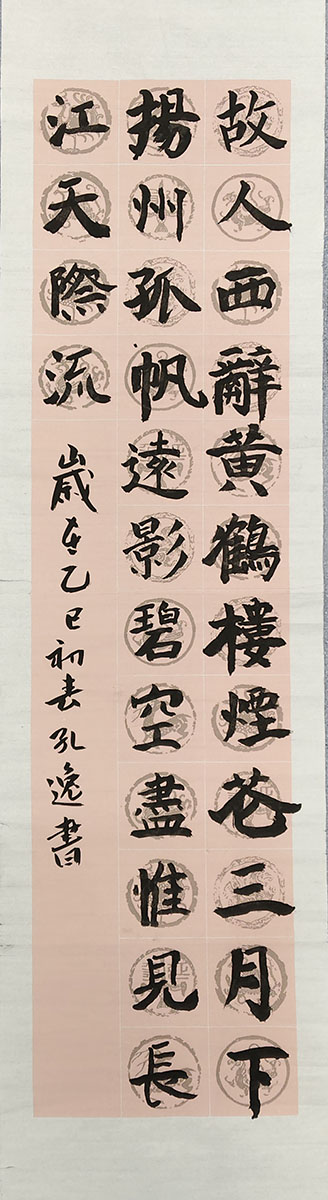 故人西辭黄鶴樓煙花三月下
揚州孤帆遠影碧空盡惟見長
江天際流
歲在乙巳初春孔逸書